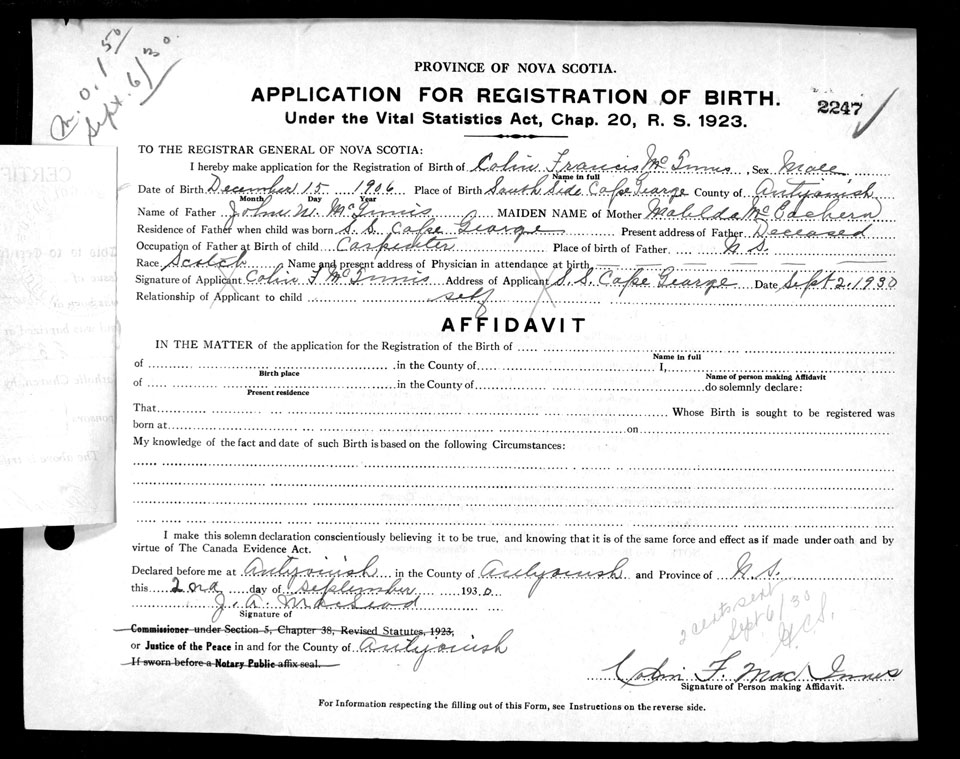 M.O. 1 50
Sept. 6/30.
PROVINCE OF NOVA SCOTIA.
APPLICATION FOR REGISTRATION OF BIRTH.
2247
Under the Vital Statistics Act, Chap. 20, R. S. 1923.
TO THE REGISTRAR GENERAL OF NOVA SCOTIA:
I hereby make application for the Registration of Birth of Colin Francis McInnis Sex Male
Name in full
Date of Birth December 15 1906 Place of Birth South Side Cape George County of Antigonish
Month Day Year
Name of Father John N. McInnis MAIDEN NAME of Mother Matilda McEachern
Residence of Father when child was born S. S. Cape George Present address of Father Deceased
Occupation of Father at Birth of child Carpenter Place of birth of Father N S.
Race Scotch Name and present address of Physician in attendance at birth
Signature of Applicant Colin F McInnis Address of Applicant S. S. Cape George Date Sept 2, 1930
Relationship of Applicant to child self
AFFIDAVIT
IN THE MATTER of the application for the Registration of the Birth of
Name in full
of in the County of I,
Birth place Name of person making Affidavit
of in the County of do solemnly declare:
Present residence
That Whose Birth is sought to be registered was
born at on
My knowledge of the fact and date of such Birth is based on the following Circumstances:
I make this solemn declaration conscientiously believing it to be true, and knowing that it is of the same force and effect as if made under oath and by
virtue of The Canada Evidence Act.
Declared before me at Antigonish in the County of Antigonish and Province of N. S.
this 2nd day of September 1930
J. A. MacLeod
Signature of
2 cents sent
Sept 6/30
Commissioner under Section 5, Chapter 38, Revised Statutes, 1923,
or Justice of the Peace in and for the County of Antigonish
If sworn before a Notary Public affix seal.
Colin F. MacInnes
Signature of Person making Affidavit.
For Information respecting the filling out of this Form, see Instructions on the reverse side.